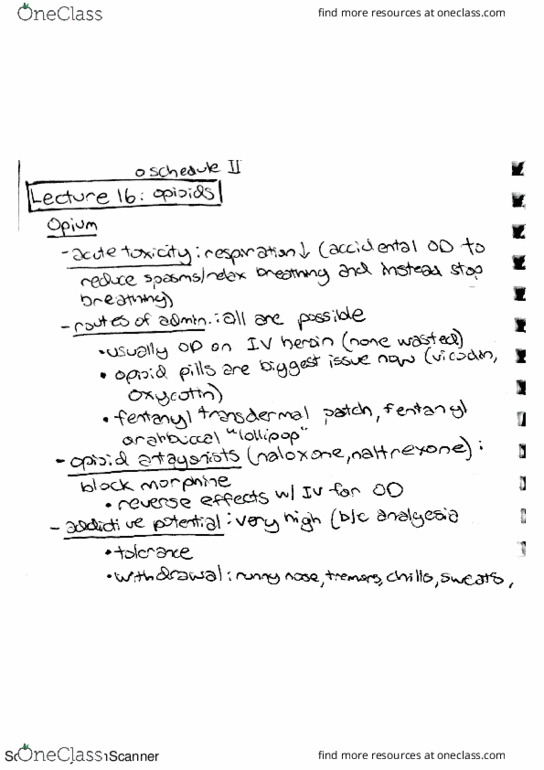 OneClass
find more resources at oneclass.com
o schedule II
Lecture 16: opioids
Opium
- acute toxicity: respiration↓ (accidental OD to
reduce spasms/relax breathing and instead stop
breathing)
- routes of admin.: all are possible
• usually OD on IV heroin (none wasted)
• opioid pills are biggest issue now (vicodin,
oxycotin)
• fentanyl transdermal patch, fentanyl
"lollipop"
- opioid antagonists (naloxone, naltrexone):
block morphine
• reverse effects w/ IV for OD
- addictive potential: very high (b/c analgesia
• tolerance
• withdrawal: runny nose, tremors, chills, sweats,
OneClass
Scanner
find more resources at oneclass.com